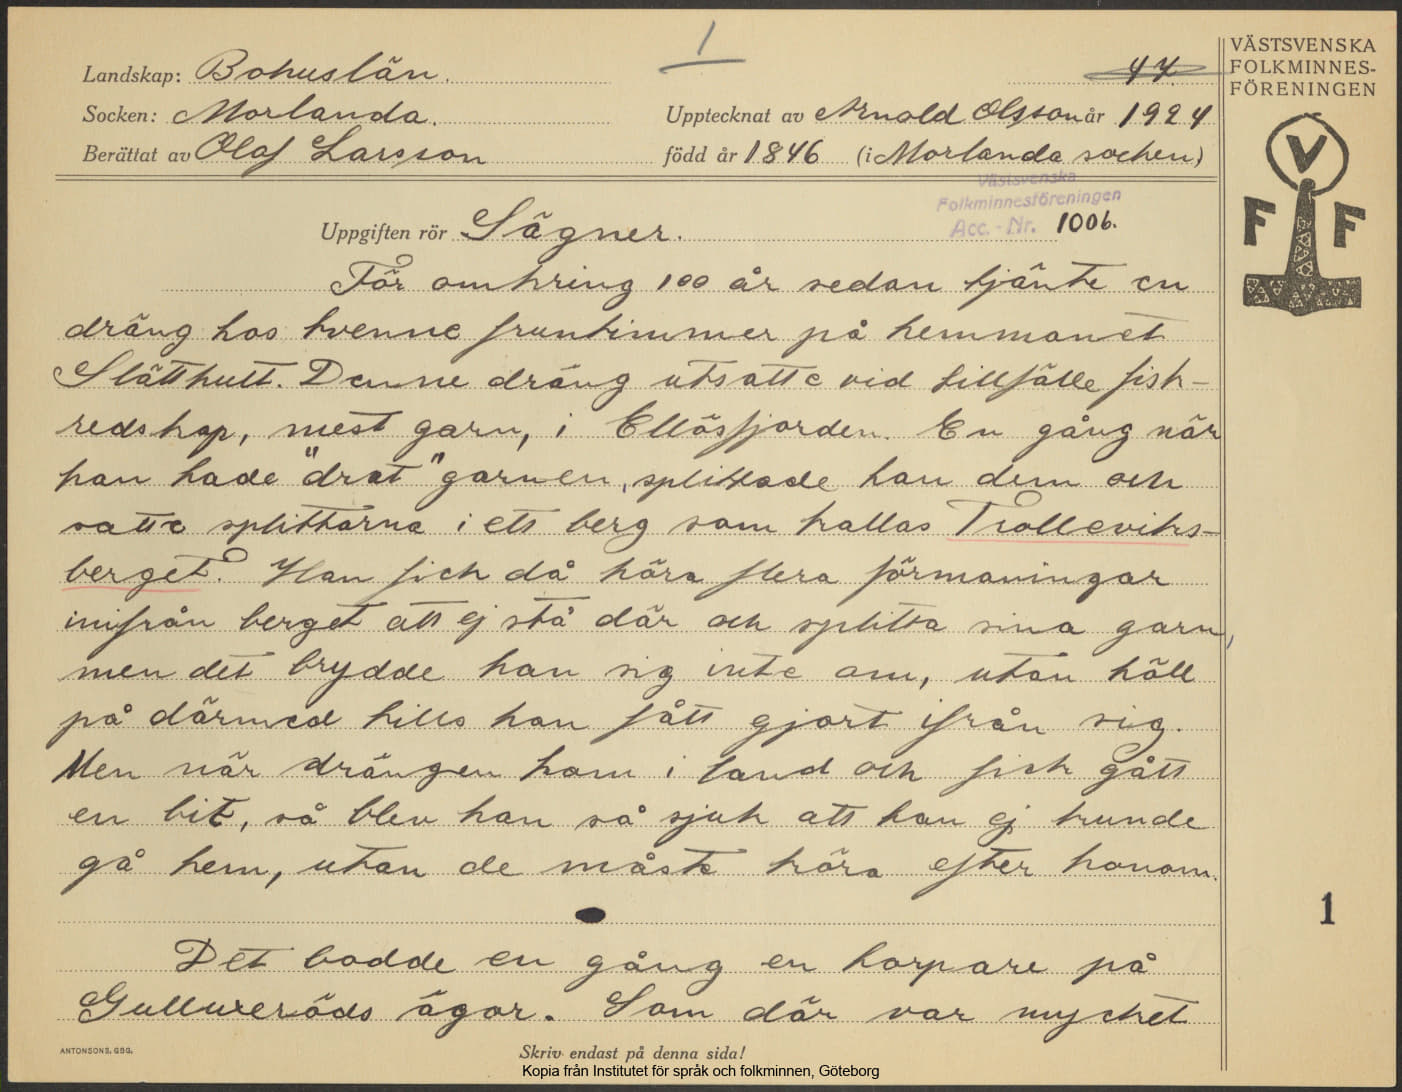 1
VÄSTSVENSKA
FOLKMINNES-
FÖRENINGEN
Landskap: Bohuslän. 44.
Socken: Morlanda. Upptecknat av Arnold Olsson år 1924
Berättat av Olaf Larsson född år 1846 (i Morlanda socken)
Västsvenska
Folkminnesföreningen
Acc.-Nr. 1006.
V
F F
Uppgiften rör Sägner.
För omkring 100 år sedan tjänte en
dräng hos tvenne fruntimmer på hemmanet
Slätthult. Denne dräng utsatte vid tillfälle fisk-
redskap, mest garn, i Ellösfjorden. En gång när
han hade "drat" garnen, splittade han dem och
satte splittarna i ett berg som kallas Trolleviks-
berget. Han fick då höra flera förmaningar
inifrån berget att ej stå där och splitta sina garn,
men det brydde han sig inte om, utan höll
på därmed tills han fått gjort ifrån sig.
Men när drängen kom i land och fick gått
en bit, så blev han så sjuk att han ej kunde
gå hem, utan de måste köra efter honom.
1
Det bodde en gång en torpare på
ägor. Som där var mycket
ANTONSONS. GBG.
Skriv endast på denna sida!
Kopia från Institutet för språk och folkminnen, Göteborg